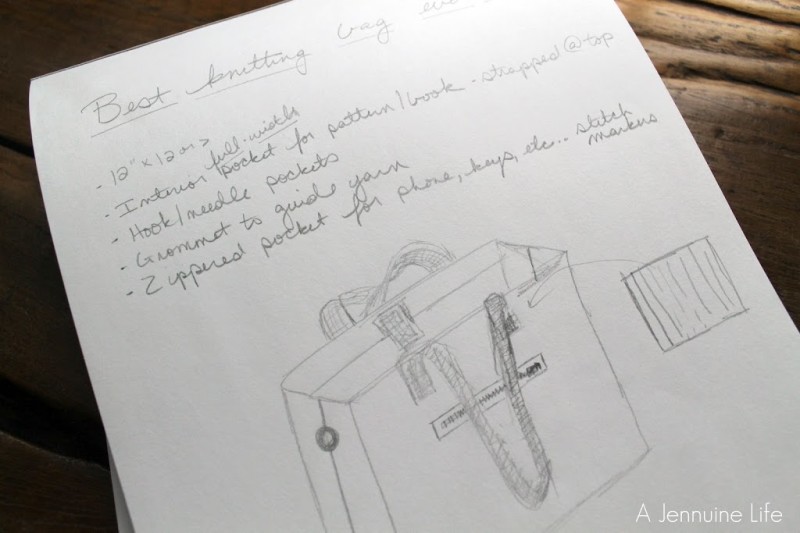 Best knitting bag eve
- 12" x 12 or >
- Interior full-width pocket for pattern/book - strapped @ top
- Hook/needle pockets
- Grommet to guide yarn
- Zippered pocket for phone, keys, etc... stitch markers
A Jennuine Life